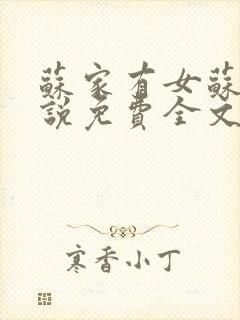 蘇家有女蘇
說免費全文
寒香小丁